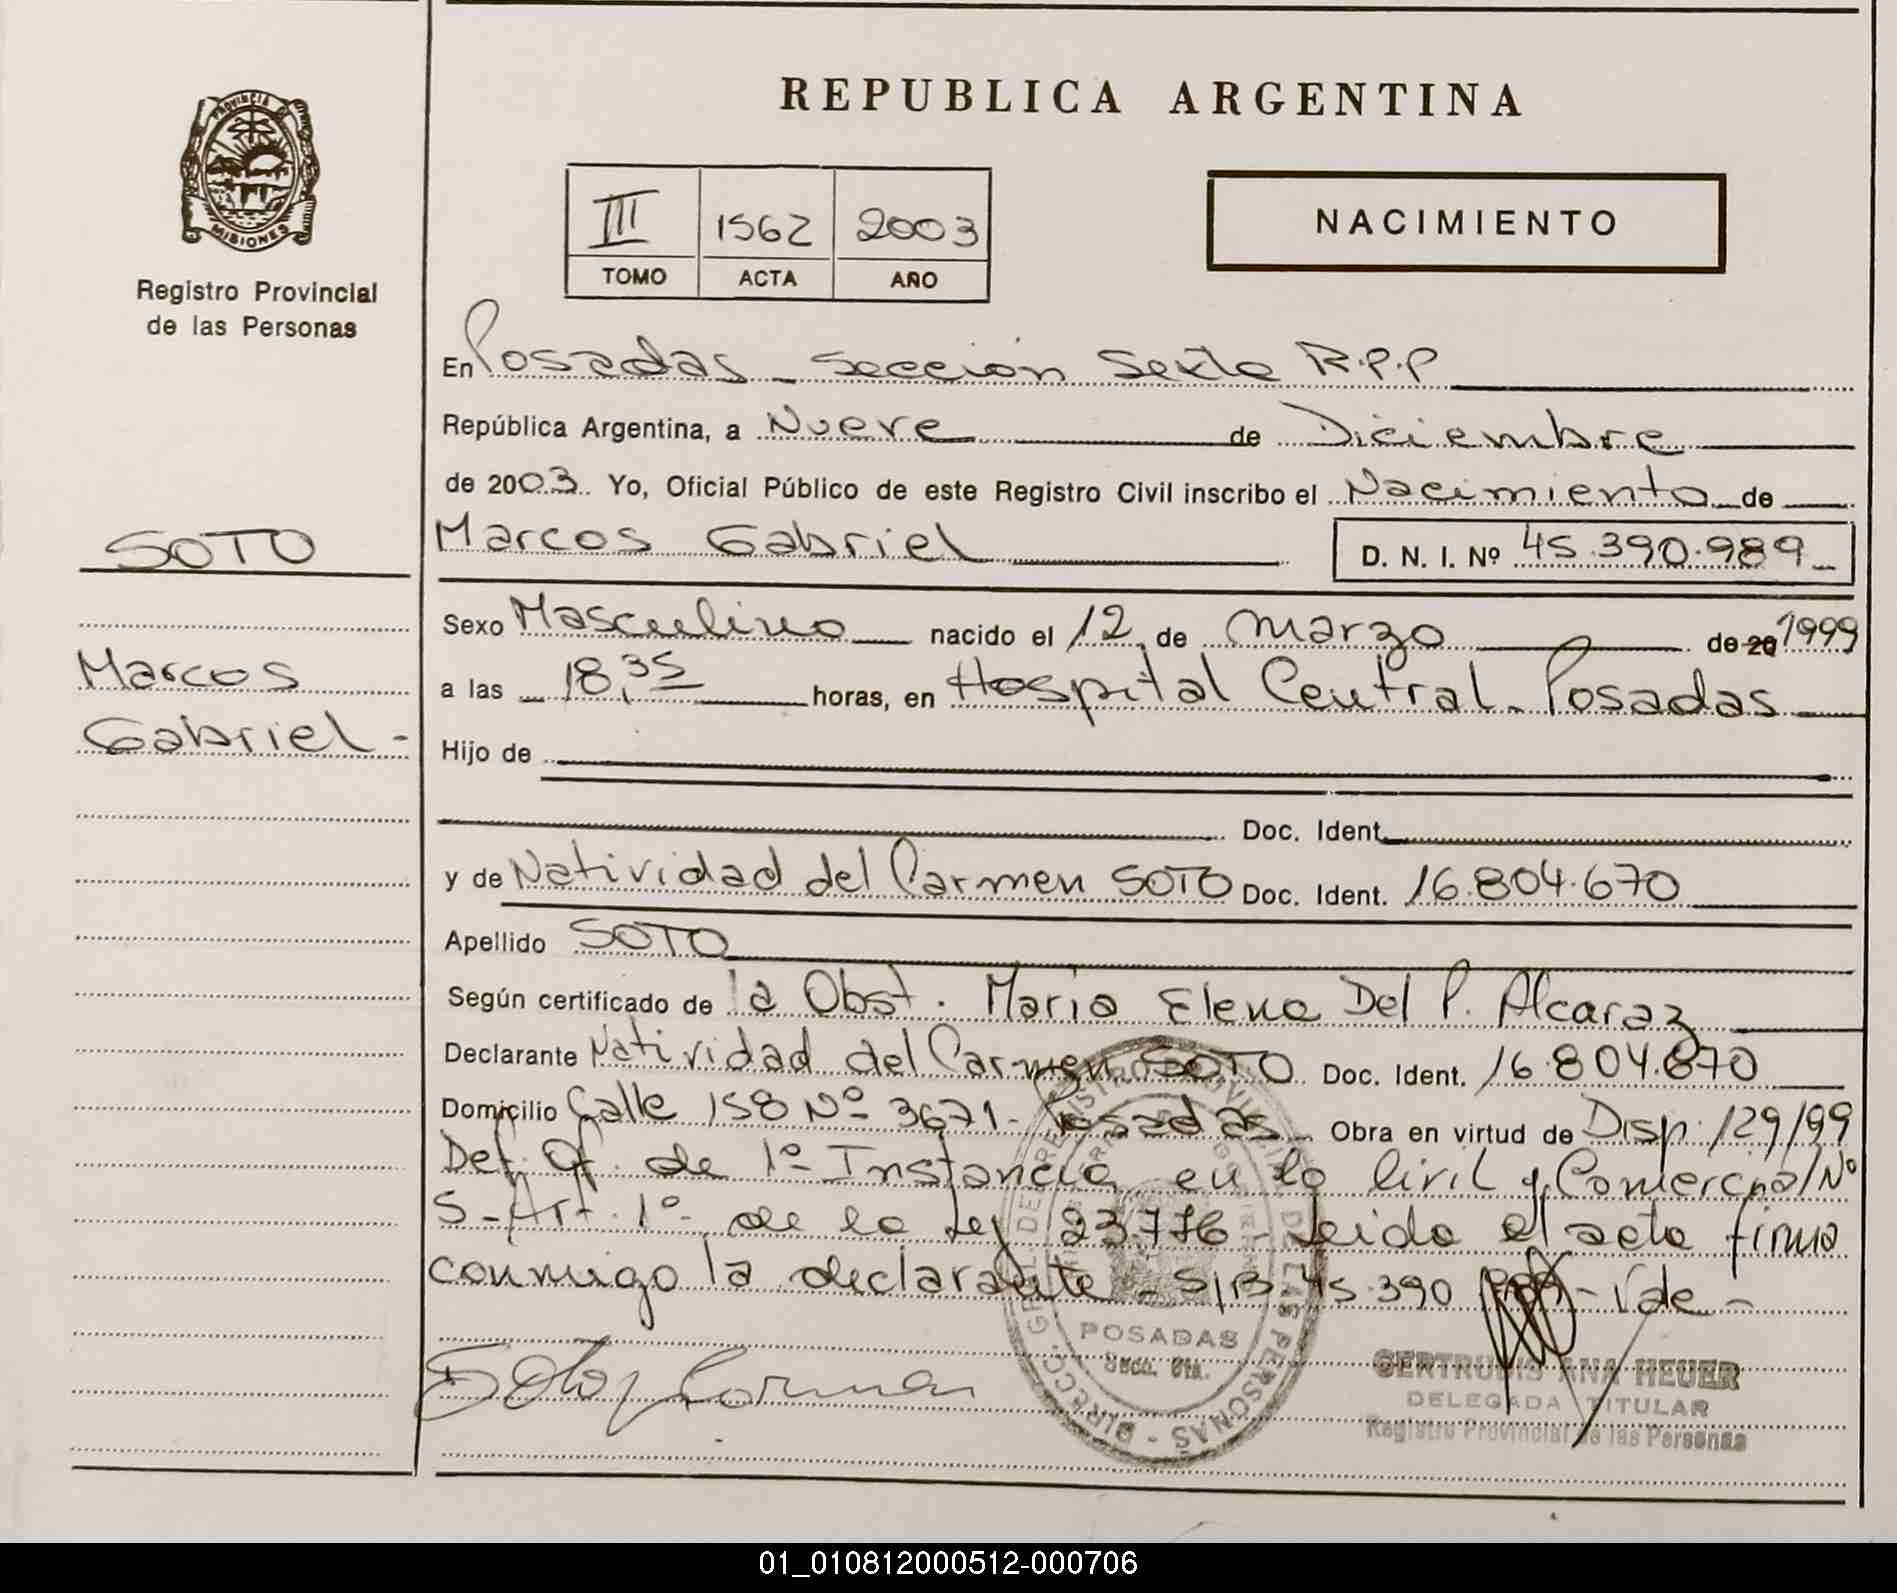 REPUBLICA ARGENTINA
PROVINCIA DE
MISIONES
Registro Provincial
de las Personas
III 1562 2003
TOMO ACTA AÑO
NACIMIENTO
En Posadas - Sección Sexta R.P.P
República Argentina, a Nueve de Diciembre
de 2003. Yo, Oficial Público de este Registro Civil inscribo el Nacimiento de
Marcos Gabriel D. N. I. Nº 45.390.989
SOTO
Marcos
Gabriel -
Sexo Masculino nacido el 12 de marzo de 20 1999
a las 18,35 horas, en Hospital Central - Posadas
Hijo de
Doc. Ident.
y de Natividad del Carmen SOTO Doc. Ident. 16.804.670
Apellido SOTO
Según certificado de la Obst. Maria Elena Del P. Alcaraz
Declarante Natividad del Carmen SOTO Doc. Ident. 16.804.670
Domicilio Calle 158 Nº 3671 - Posadas - Obra en virtud de Disp. 129/99
Def. Of. de 1º Instancia en lo Civil y Comercial Nº
5 - Art. 1º de la Ley 23.776 - Leida el acta firma
conmigo la declarante - S/B 45.390 - Vde -
DIRECC. GRAL. DE REGISTRO CIVIL DE LAS PERSONAS
POSADAS
Secc. 6ta.
GERTRUDIS ANA HEUER
DELEGADA TITULAR
Registro Provincial de las Personas
01_010812000512-000706